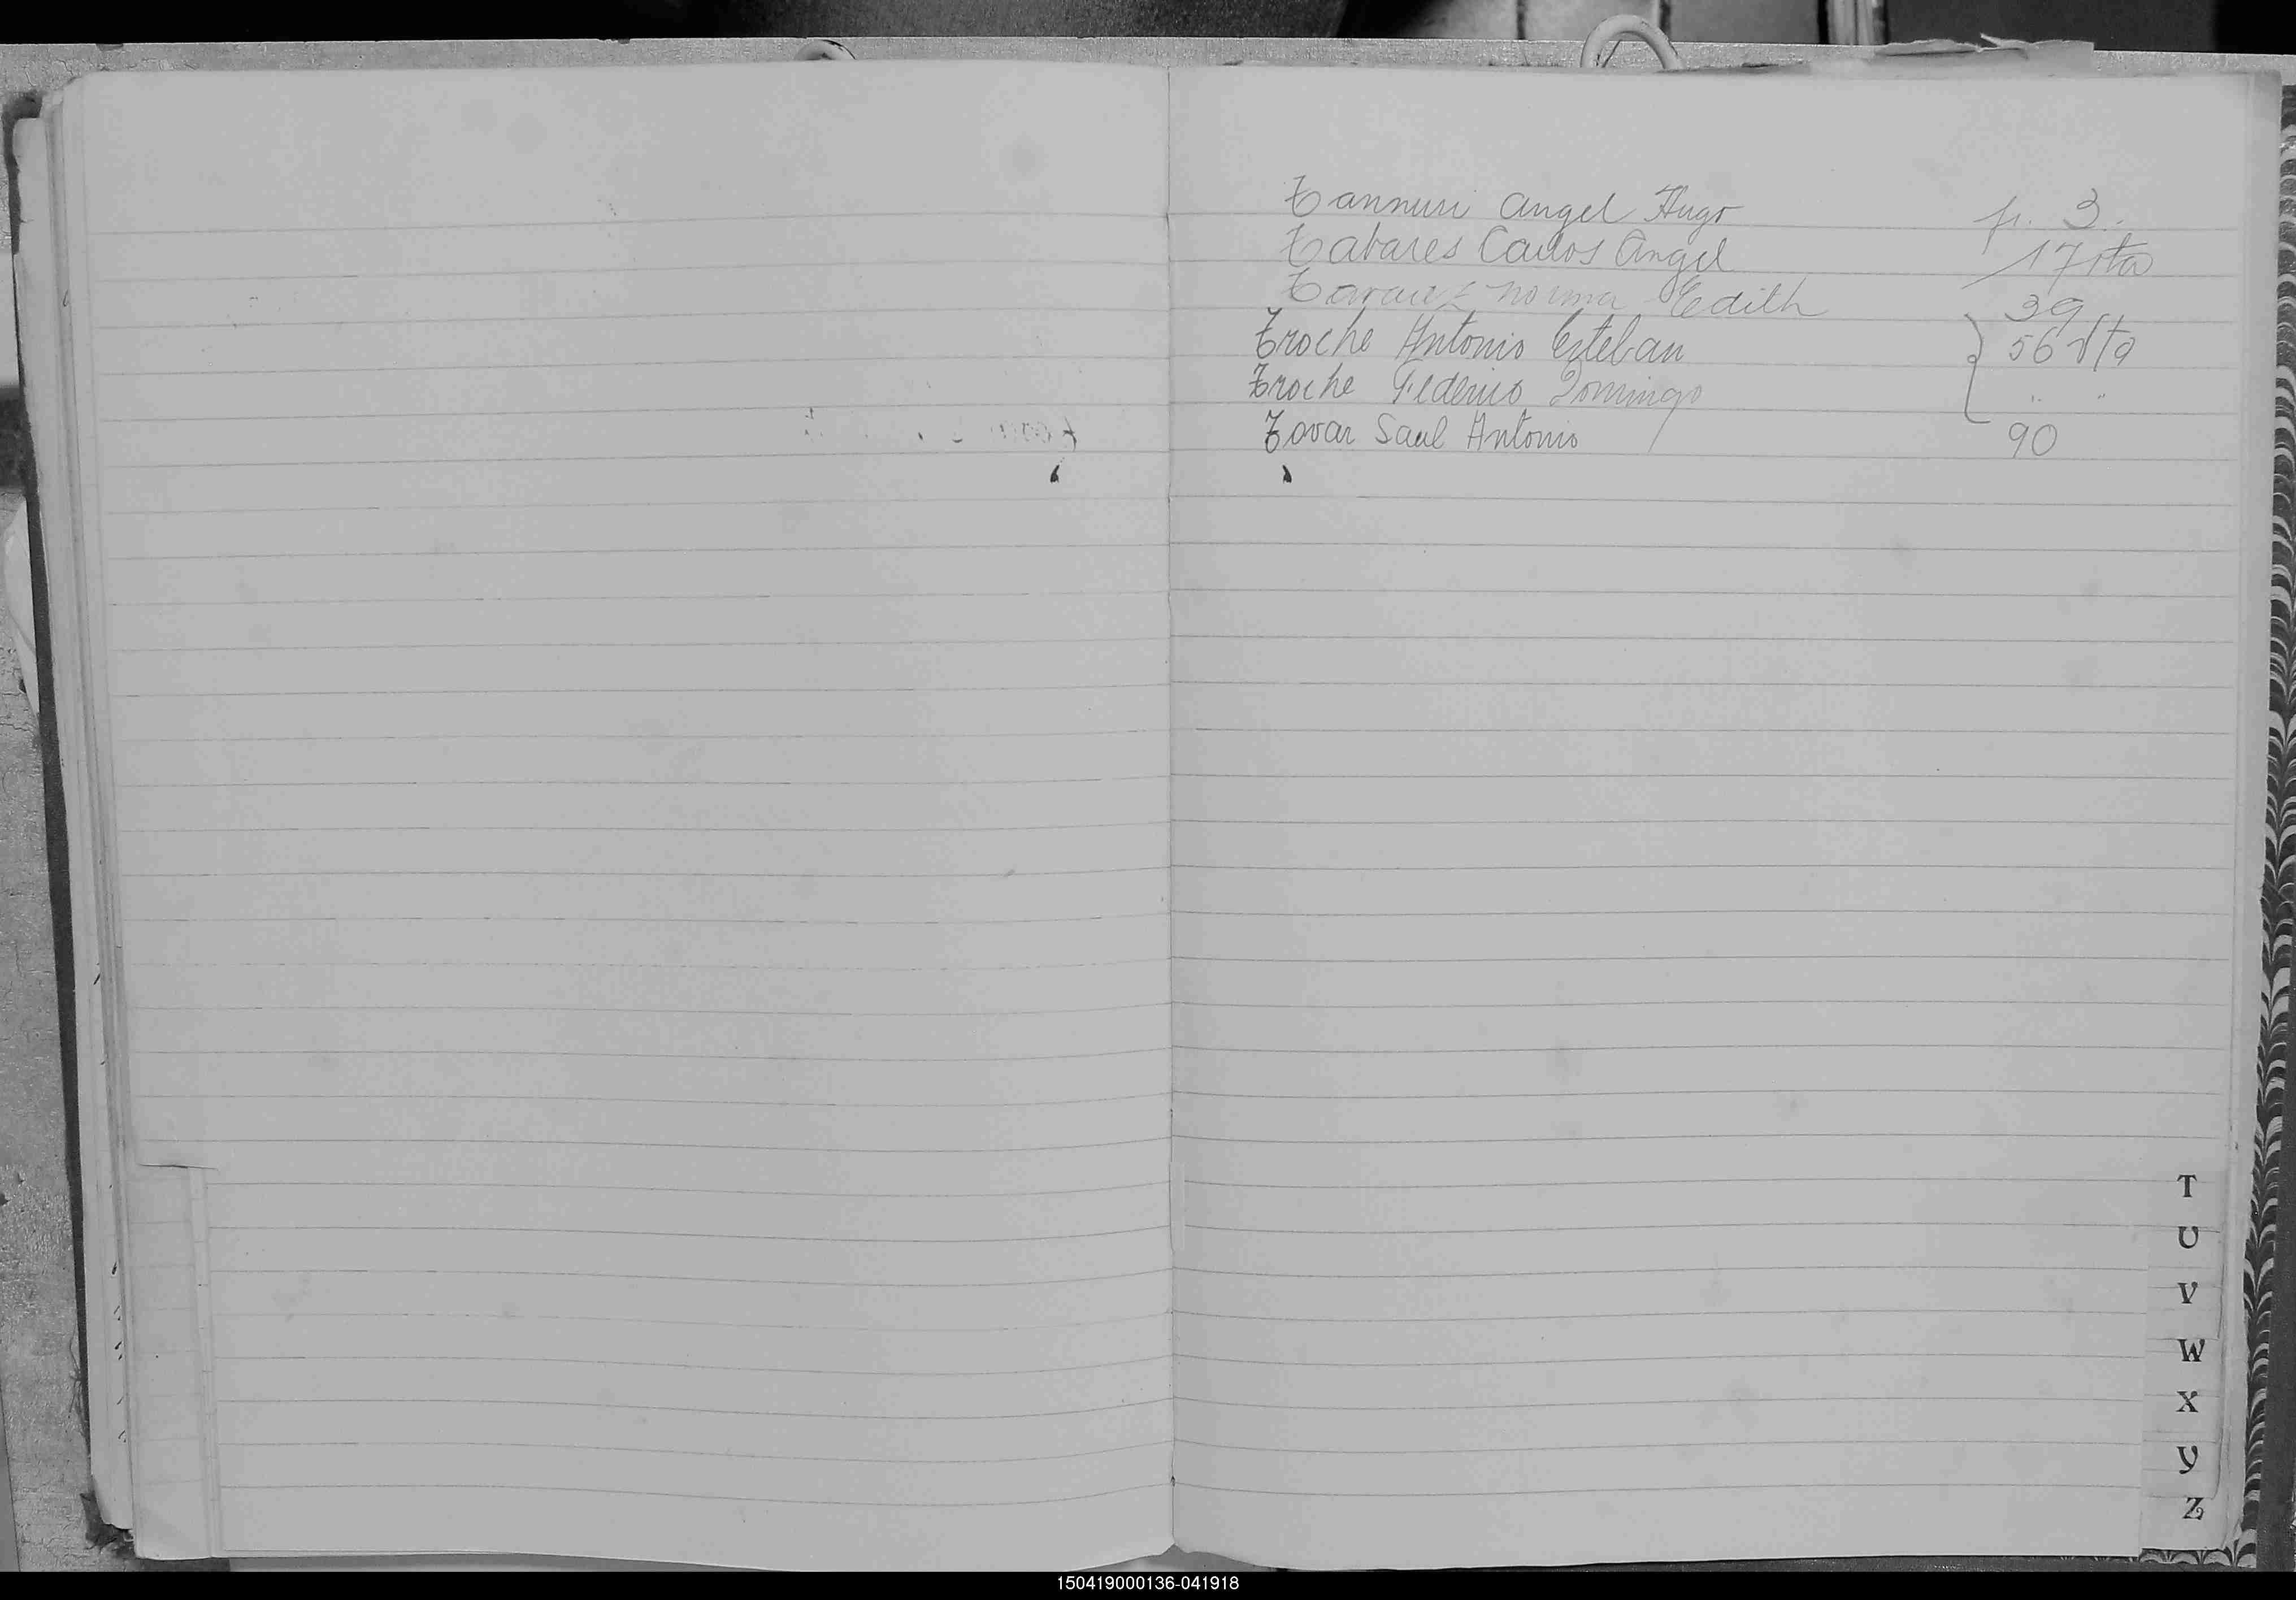 Tannuri Angel Hugo f. 3.
Tabares Carlos Angel 17 vta
Tavarez Norma Edith 39
Troche Antonio Esteban 56 vta
Troche Federico Domingo " "
Tovar Saul Antonio 90
T
U
V
W
X
Y
Z
150419000136-041918